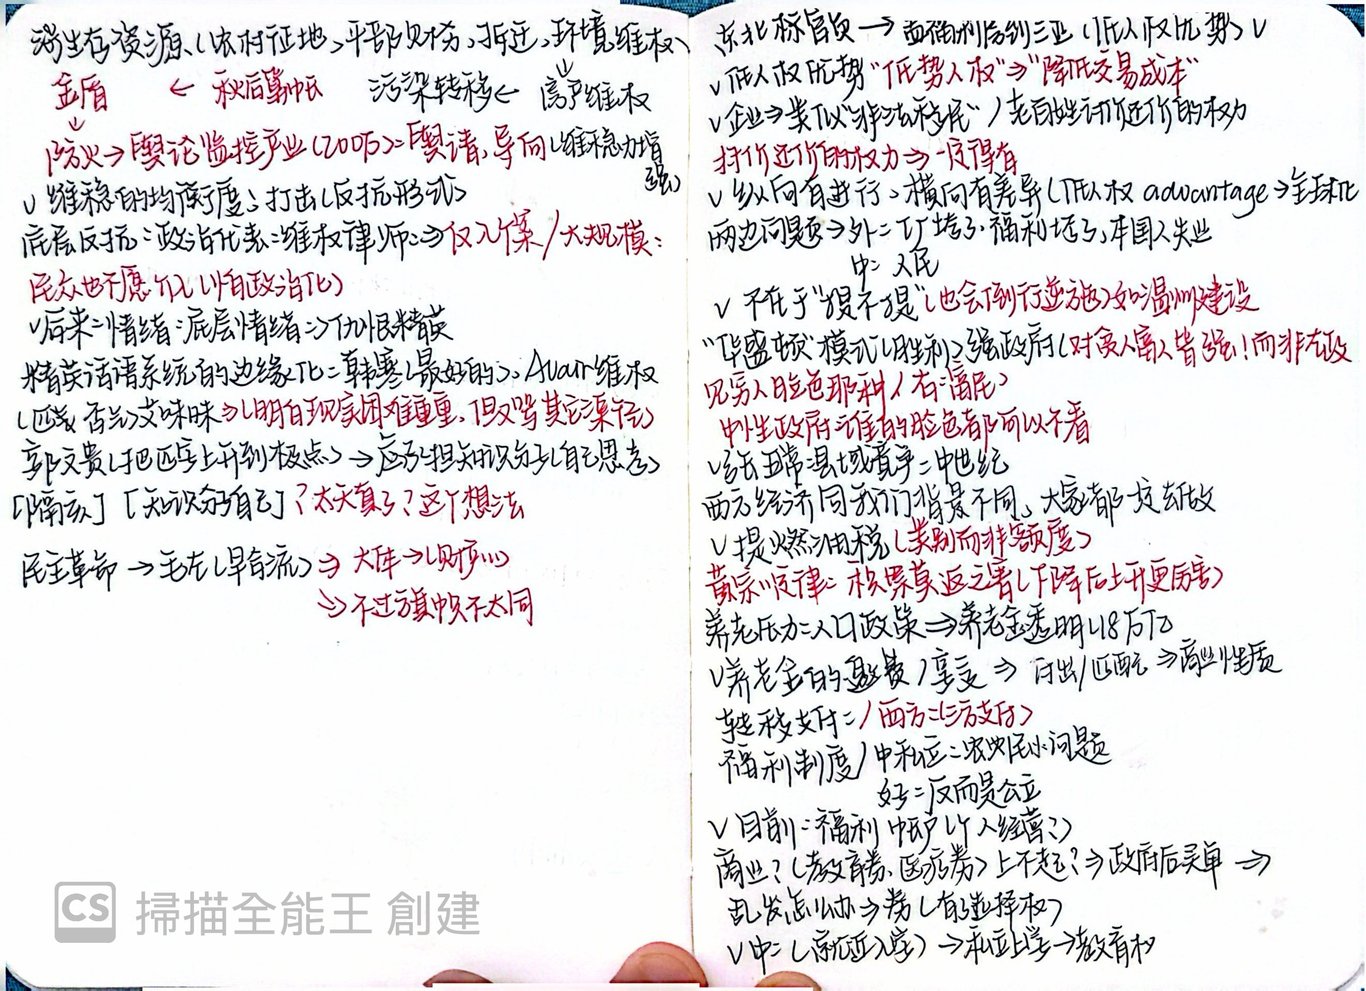 生存资源(农村征地、干部财务、拆迁、环境维权)
金盾 ← 秋后算帐 污染转移← 高严维权
防火→舆论监控产业(200万)=舆请,导向(维稳力增强)
∨维稳的均衡度、打击(反抗形式)
底层反抗:政治代表:维权律师:⇒仅入个案/大规模:
民众也不愿介入(怕政治化)
∨后来=情绪:底层情绪=>仇恨精英
精英话语系统的边缘化=韩寒(最好的)、维权
艾味昧⇒(明白现实困难重重,但又骂其它)
郭文贵(把上升到极点)→知识分子(自己思考)
[隔] [知识分子自己]?太天真了?这个想法
民主革命→毛左(早合流)⇒大库→(财产)
⇒不过旗帜不太同
东北→西福利(低人权优势)∨
∨低人权优势"低势人权"⇒"降低交易成本"
∨企业⇒类似"非法移民"/老百姓讨价还价的权力
讨价还价的权力⇒一定得有
∨纵向有进行、横向有差异(低人权advantage→全球化
两边问题⇒外=工厂垮了、福利垮了,本国人失业
中=人民
∨不在于"提不提"(也会倒行逆施)如温州建设
"华盛顿"模式(胜利)强政府(对贫人富人皆强!而非左极
见穷人脸色那种/右:富民)
中性政府=谁的脸色都可以不看
∨县域竞争=中世纪
西方经济同我们背景不同、大家都一块去做
∨提燃油税(类别而非额度)
黄宗羲定律=积累莫返之害(下降后上升更厉害)
养老压力=人口政策⇒养老金透明(18万亿
∨养老金的缴费/享受⇒付出/匹配⇒商业性质
转移支付=/西方=(三方支付)
福利制度/中私立=农民小问题
好=反而是公立
∨目前=福利 中(个人经营?)
商业?(教育券、医疗券)上不起?⇒政府后买单⇒
乱发怎么办⇒券(有选择权)
∨中=(就近入学)→私立上学→教育权
CS 掃描全能王 創建